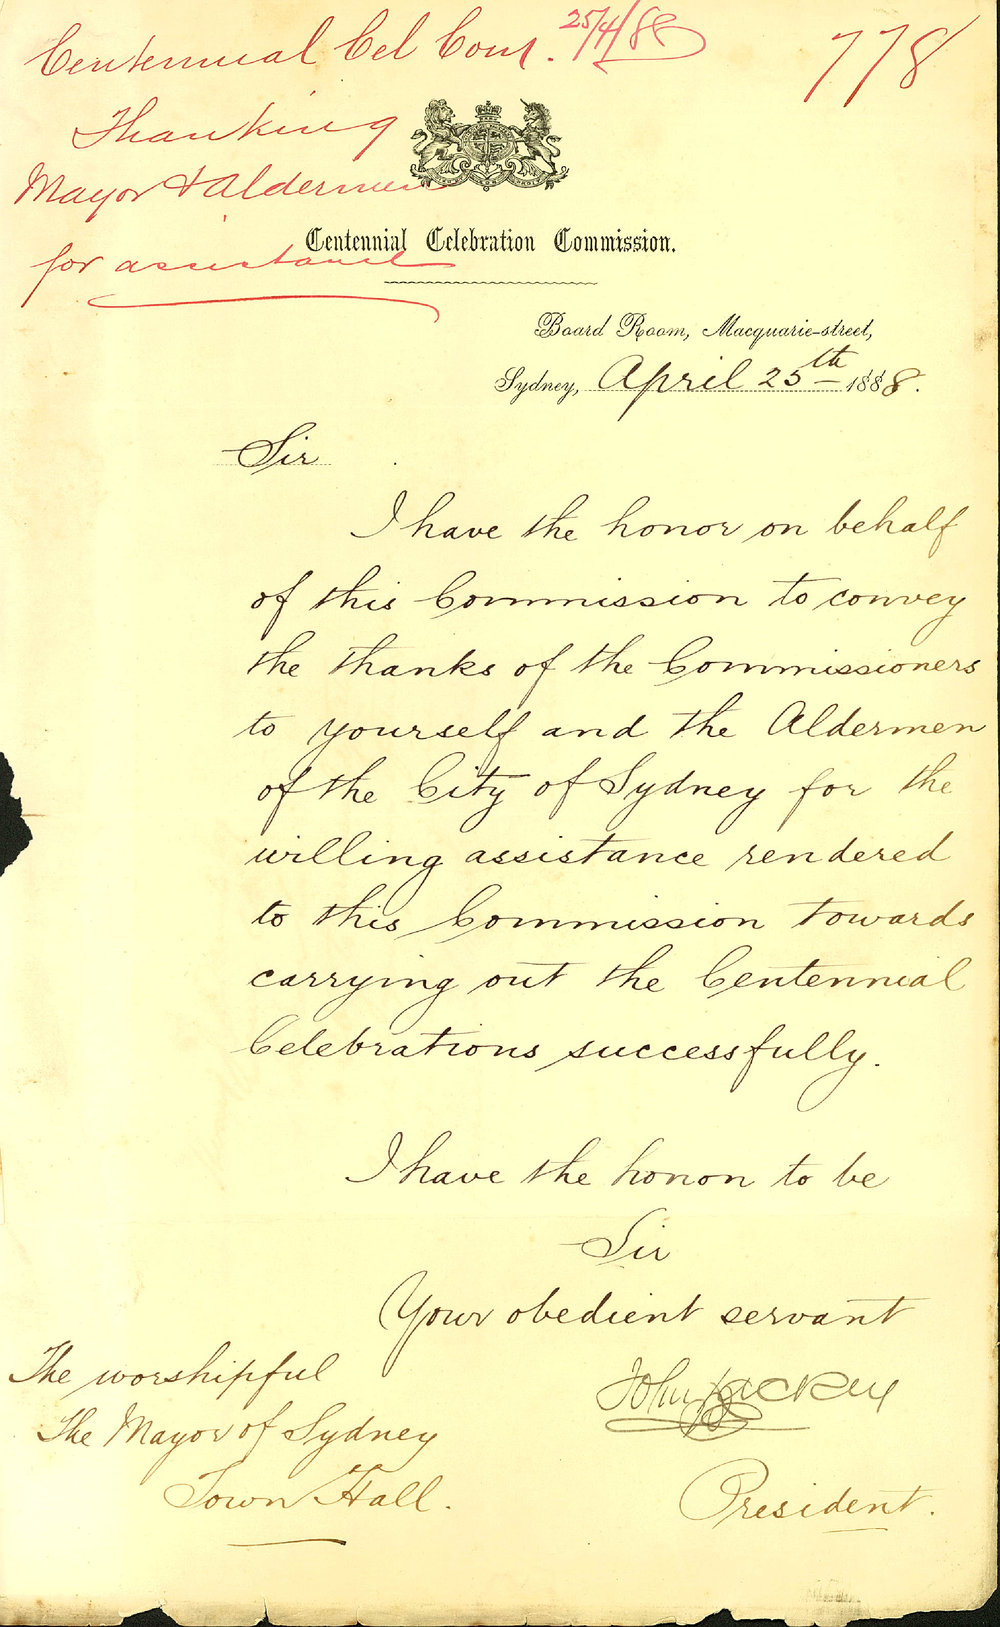 Centennial Cel Com. 25/4/88
778
Thanking
Mayor & Aldermen
for assistance
Centennial Celebration Commission.
Board Room, Macquarie-street,
Sydney, April 25th 1888.
Sir
I have the honor on behalf
of this Commission to convey
the thanks of the Commissioners
to yourself and the Aldermen
of the City of Sydney for the
willing assistance rendered
to this Commission towards
carrying out the Centennial
Celebrations successfully.
I have the honor to be
Sir
Your obedient servant
John
President.
The worshipful
The Mayor of Sydney
Town Hall.